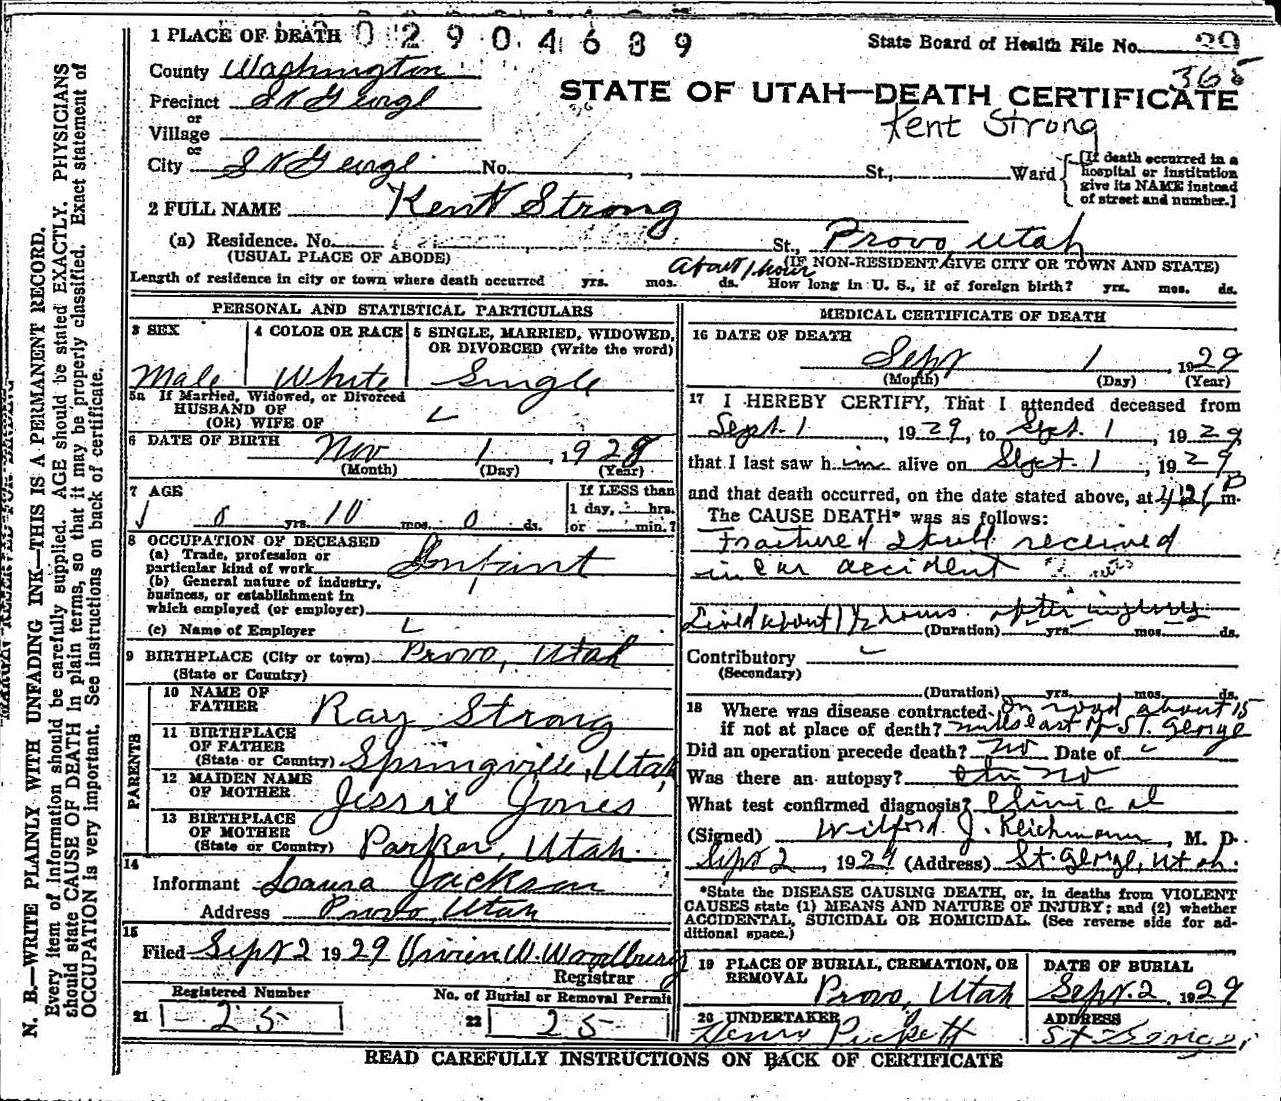 1 PLACE OF DEATH 0 2 9 0 4 6 8 9
State Board of Health File No. 29
365
County Washington
STATE OF UTAH—DEATH CERTIFICATE
Precinct St George
Kent Strong
or
Village
or
City St George No. , St., Ward
[If death occurred in a
hospital or institution
give its NAME instead
of street and number.]
2 FULL NAME Kent Strong
(a) Residence. No. St., Provo, Utah
(USUAL PLACE OF ABODE) (IF NON-RESIDENT GIVE CITY OR TOWN AND STATE)
About 1 hour
Length of residence in city or town where death occurred yrs. mos. ds. How long in U. S., if of foreign birth? yrs. mos. ds.
PERSONAL AND STATISTICAL PARTICULARS
3 SEX
Male
4 COLOR OR RACE
White
5 SINGLE, MARRIED, WIDOWED,
OR DIVORCED (Write the word)
Single
5a If Married, Widowed, or Divorced
HUSBAND OF
(OR) WIFE OF
6 DATE OF BIRTH Nov 1, 1928
(Month) (Day) (Year)
7 AGE
0 yrs. 10 mos. 0 ds.
If LESS than
1 day, hrs.
or min.?
8 OCCUPATION OF DECEASED
(a) Trade, profession or
particular kind of work Infant
(b) General nature of industry,
business, or establishment in
which employed (or employer)
(c) Name of Employer
9 BIRTHPLACE (City or town) Provo, Utah
(State or Country)
PARENTS
10 NAME OF
FATHER Ray Strong
11 BIRTHPLACE
OF FATHER
(State or Country) Springville, Utah
12 MAIDEN NAME
OF MOTHER Jessie Jones
13 BIRTHPLACE
OF MOTHER
(State or Country) Parker, Utah.
14
Informant Laura Jackson
Address Provo, Utah
15
Filed Sept 2 1929 Vivien W. Woodbury
Registrar
Registered Number
21 25
No. of Burial or Removal Permit
22 25
MEDICAL CERTIFICATE OF DEATH
16 DATE OF DEATH
Sept 1, 1929
(Month) (Day) (Year)
17 I HEREBY CERTIFY, That I attended deceased from
Sept. 1, 1929, to Sept. 1, 1929
that I last saw h im alive on Sept. 1, 1929
and that death occurred, on the date stated above, at P m.
The CAUSE DEATH* was as follows:
Fractured skull received
in car accident
Lived about 1 1/2 hours after injury
(Duration) yrs. mos. ds.
Contributory
(Secondary)
(Duration) yrs. mos. ds.
18 Where was disease contracted On road about 15
if not at place of death? miles east of St. George
Did an operation precede death? No Date of
Was there an autopsy? no
What test confirmed diagnosis? Clinical
(Signed) Wilford J. Reichmann, M. D.
Sept 2, 1929 (Address) St. George, Utah.
*State the DISEASE CAUSING DEATH, or, in deaths from VIOLENT
CAUSES state (1) MEANS AND NATURE OF INJURY; and (2) whether
ACCIDENTAL, SUICIDAL OR HOMICIDAL. (See reverse side for ad-
ditional space.)
19 PLACE OF BURIAL, CREMATION, OR
REMOVAL
Provo, Utah
DATE OF BURIAL
Sept. 2 1929
20 UNDERTAKER
Henry Pickett
ADDRESS
St George
READ CAREFULLY INSTRUCTIONS ON BACK OF CERTIFICATE
N. B.—WRITE PLAINLY WITH UNFADING INK—THIS IS A PERMANENT RECORD.
Every item of information should be carefully supplied. AGE should be stated EXACTLY. PHYSICIANS
should state CAUSE OF DEATH in plain terms, so that it may be properly classified. Exact statement of
OCCUPATION is very important. See instructions on back of certificate.